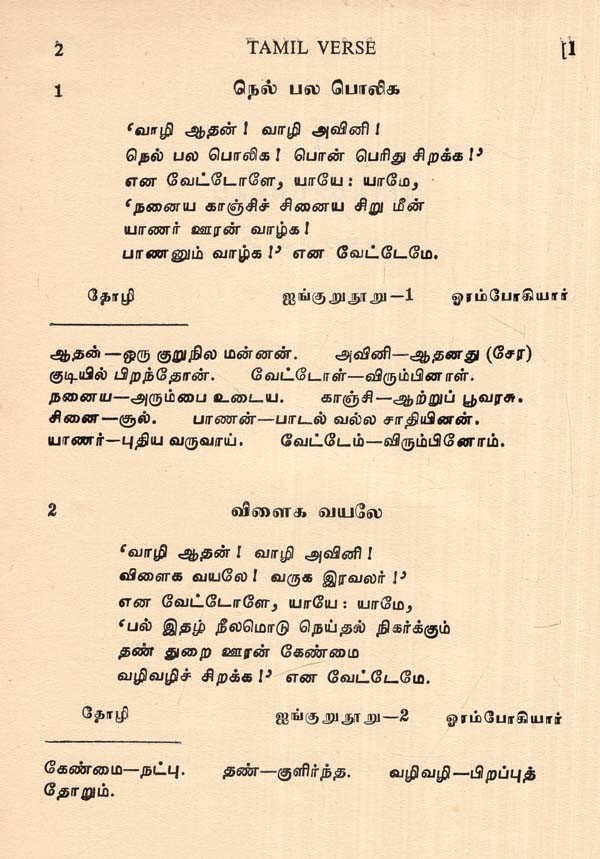 2 TAMIL VERSE [1
1 நெல் பல பொலிக
‘வாழி ஆதன்! வாழி அவினி!
நெல் பல பொலிக! பொன் பெரிது சிறக்க!’
என வேட்டோளே, யாயே: யாமே,
‘நனைய காஞ்சிச் சினைய சிறு மீன்
யாணர் ஊரன் வாழ்க!
பாணனும் வாழ்க!’ என வேட்டேமே.
தோழி ஐங்குறுநூறு—1 ஓரம்போகியார்
ஆதன்—ஒரு குறுநில மன்னன். அவினி—ஆதனது (சேர)
குடியில் பிறந்தோன். வேட்டோள்—விரும்பினாள்.
நனைய—அரும்பை உடைய. காஞ்சி—ஆற்றுப் பூவரசு.
சினை—சூல். பாணன்—பாடல் வல்ல சாதியினன்.
யாணர்—புதிய வருவாய். வேட்டேம்—விரும்பினோம்.
2 விளைக வயலே
‘வாழி ஆதன்! வாழி அவினி!
விளைக வயலே! வருக இரவலர்!’
என வேட்டோளே, யாயே: யாமே,
‘பல் இதழ் நீலமொடு நெய்தல் நிகர்க்கும்
தண் துறை ஊரன் கேண்மை
வழிவழிச் சிறக்க!’ என வேட்டேமே.
தோழி ஐங்குறுநூறு—2 ஓரம்போகியார்
கேண்மை—நட்பு. தண்—குளிர்ந்த. வழிவழி—பிறப்புத்
தோறும்.